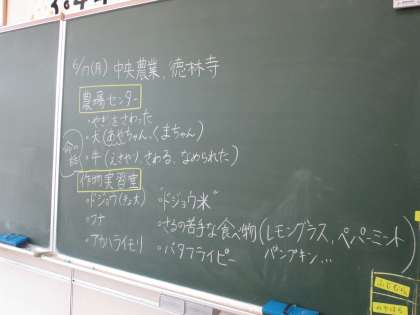 6/17(月) 中央農業、徳林寺
農場センター
・やぎをさわった
・犬(あやちゃん、くまちゃん)
・牛(えさやり、さわる、なめられた)
命の話
作物実習室
・ドジョウ(チュ太) "ドジョウ米"
・フナ ・さるの苦手な食べ物(レモングラス、ペパーミント)
・アカハライモリ ・バタフライピー パンプキン...